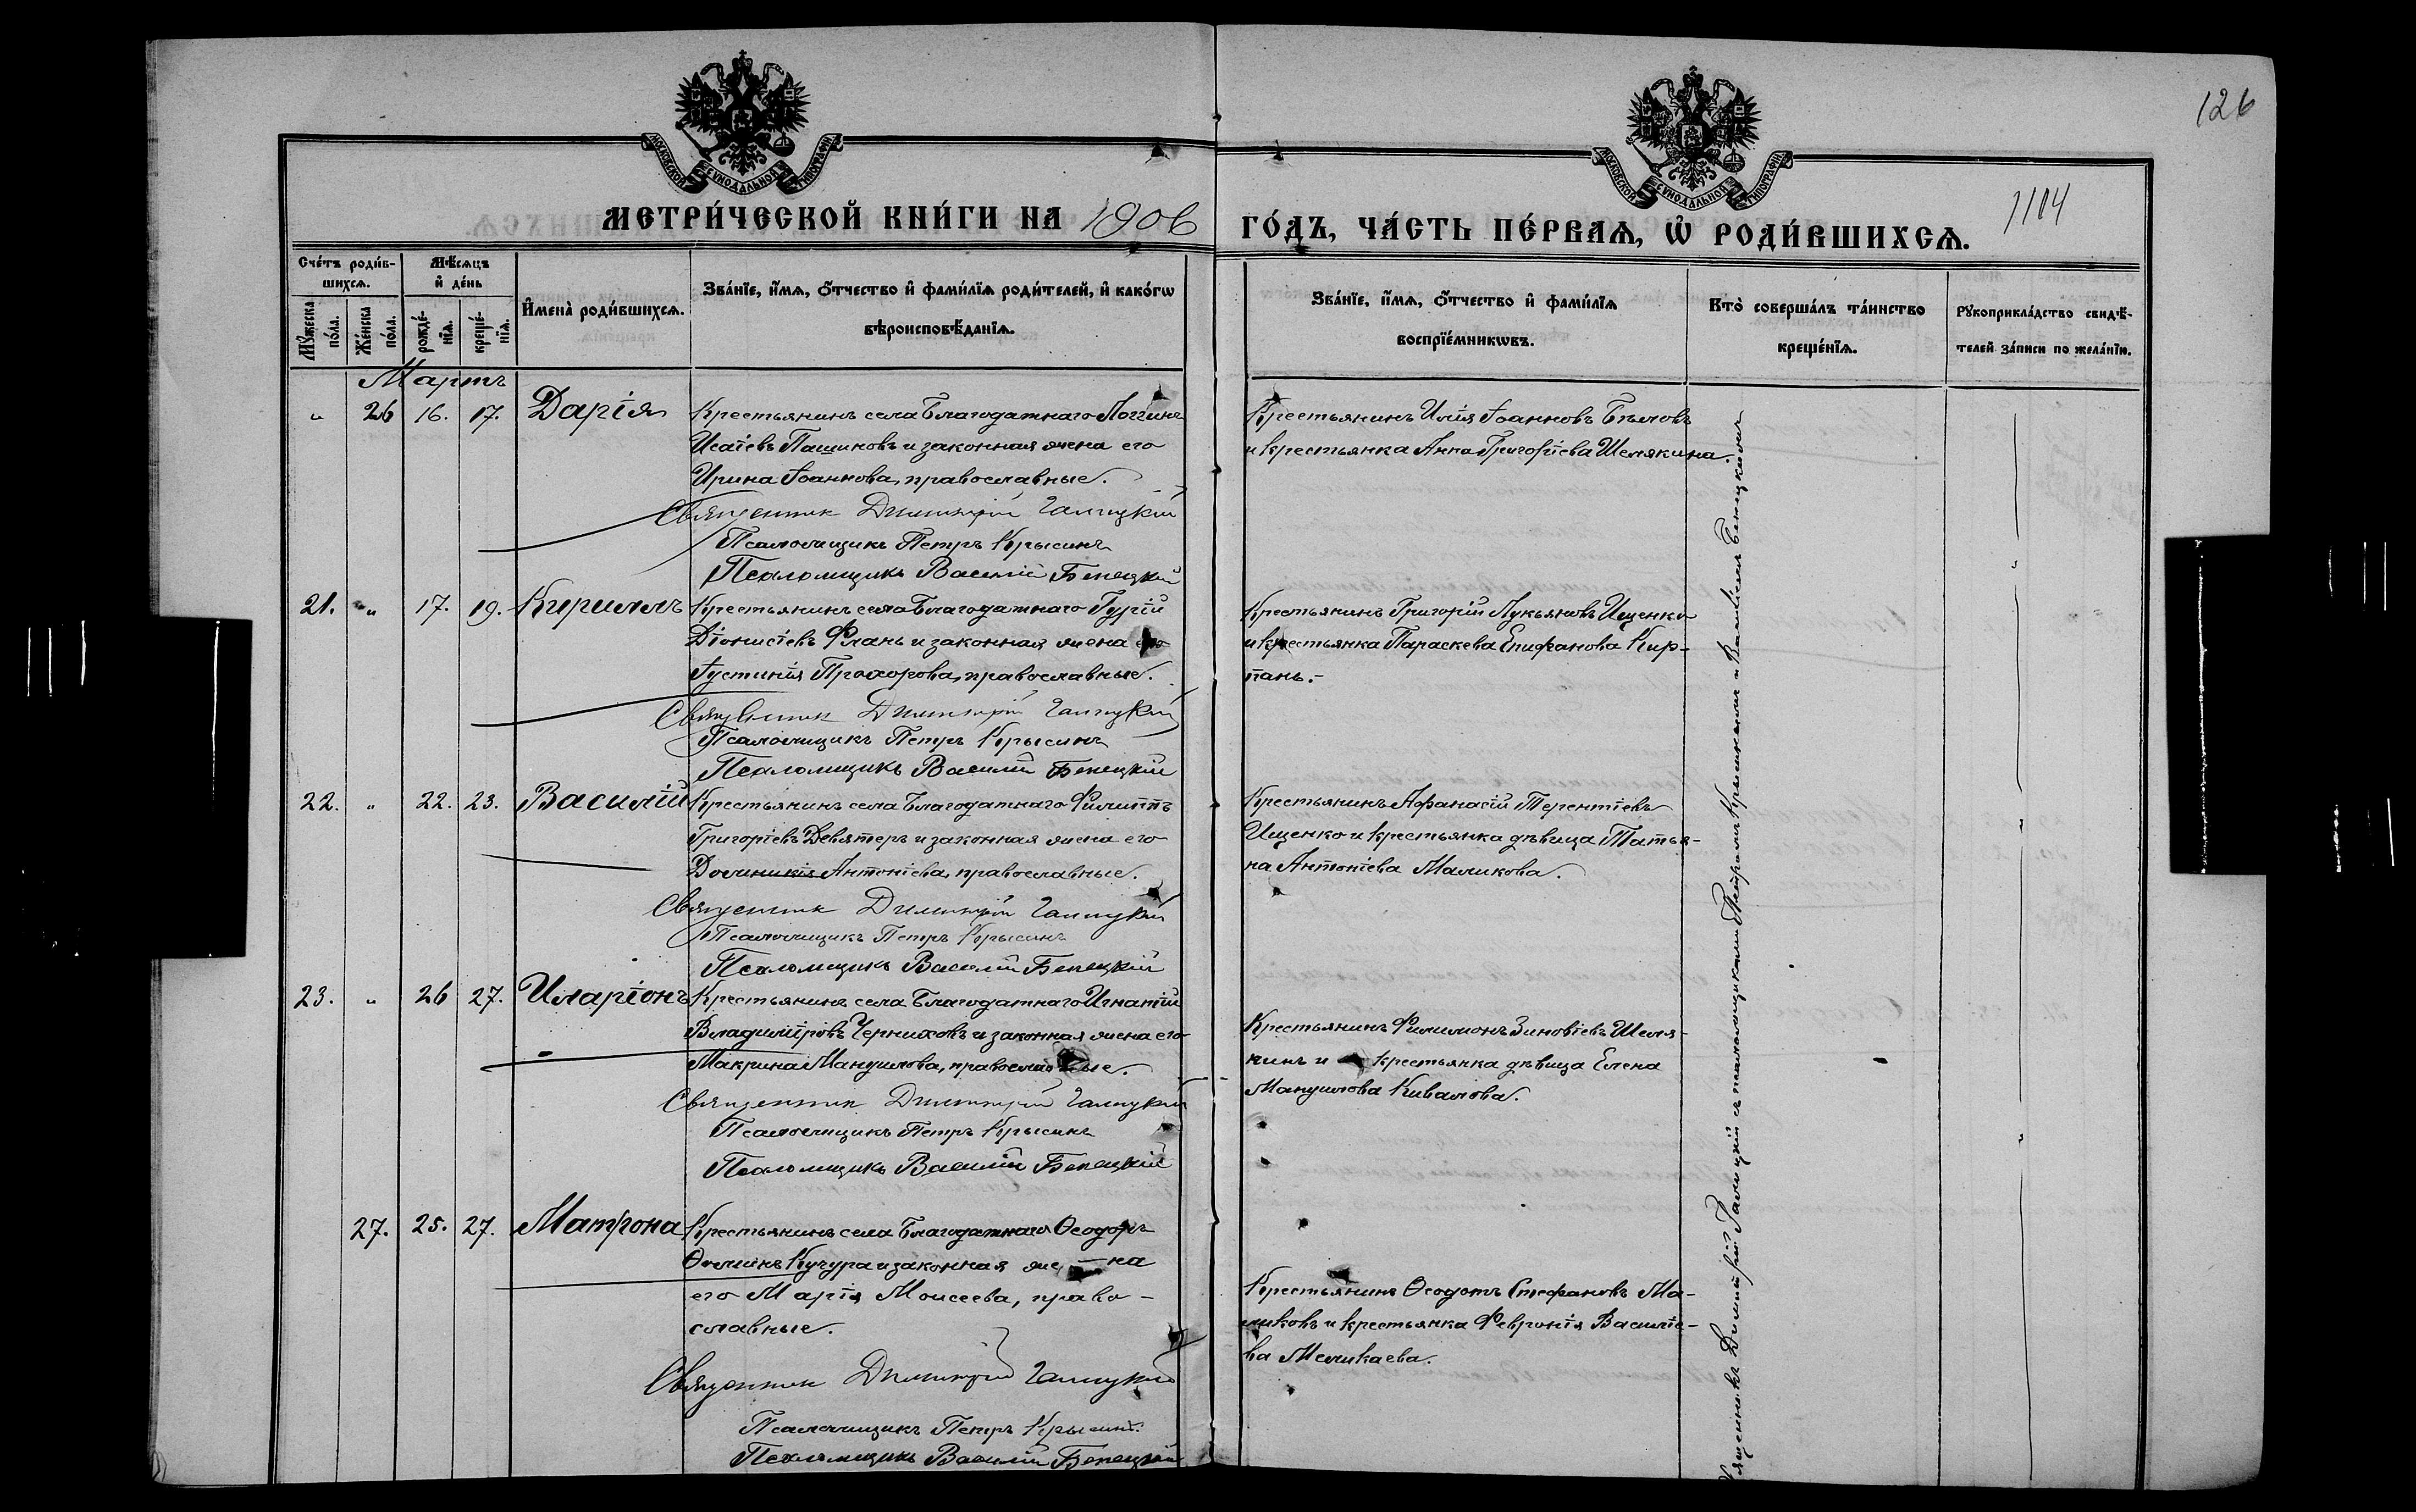 126
МОСКОВСКОЙ СѴНОДАЛЬНОЙ ТИПОГРАФІИ
МОСКОВСКОЙ СѴНОДАЛЬНОЙ ТИПОГРАФІИ
МЕТРИ́ЧЕСКОЙ КНИ́ГИ НА 1906 ГО́ДЪ, ЧА́СТЬ ПЕ́РВАѦ, Ѡ҆ РОДИ́ВШИХСѦ.
1104
Сче́тъ роди́в-
шихсѧ.
Мꙋ́жеска по́ла.
Же́нска по́ла.
Мѣ́сѧцъ
и҆ де́нь
рожде́-нїѧ.
креще́-нїѧ.
И҆мена̀ роди́вшихсѧ.
Зва́нїе, и҆́мѧ, ѻ҆́тчество и҆ фами́лїѧ роди́телей, и҆ како́гѡ
вѣроисповѣ́данїѧ.
Зва́нїе, и҆́мѧ, ѻ҆́тчество и҆ фами́лїѧ
воспрїе́мникѡвъ.
Кто̀ соверша́лъ та́инство
креще́нїѧ.
Рꙋкоприкла́дство свидѣ́-
телей за́писи по жела́нїю.
Мартъ
" 26 16. 17. Дарія
Крестьянинъ села Благодатнаго Логгинъ
Исаіевъ Пашиновъ и законная жена его
Ирина Іоаннова, православные.
Священник Димитрій Галицкій
Псаломщикъ Петръ Крысинъ
Псаломщикъ Василій Бенецкій
Крестьянинъ Илія Іоанновъ Бѣловъ
и крестьянка Анна Григоріева Шелякина.
21. " 17. 19. Кириллъ
Крестьянинъ села Благодатнаго Гурій
Діонисіевъ Флань и законная жена его
Іустинія Прохорова, православные.
Священник Димитрій Галицкій
Псаломщикъ Петръ Крысинъ
Псаломщикъ Василій Бенецкій
Крестьянинъ Григорій Лукьяновъ Ищенко
и крестьянка Параскева Епифанова Кир-
пань.
22. " 22. 23. Василій
Крестьянинъ села Благодатнаго Филиппъ
Григоріевъ Девятеръ и законная жена его
Доминикія Антоніева, православные.
Священник Димитрій Галицкій
Псаломщикъ Петръ Крысинъ
Псаломщикъ Василій Бенецкій
Крестьянинъ Афанасій Терентіевъ
Ищенко и крестьянка дѣвица Татья-
на Антоніева Маликова.
23. " 26 27. Иларіонъ
Крестьянинъ села Благодатнаго Игнатій
Владиміровъ Черниховъ и законная жена его
Макрина Мануилова, православные.
Священник Димитрій Галицкій
Псаломщикъ Петръ Крысинъ
Псаломщикъ Василій Бенецкій
Крестьянинъ Филимонъ Зиновіевъ Шеля-
кинъ и крестьянка дѣвица Елена
Мануилова Кивалова.
27. 25. 27. Матрона
Крестьянинъ села Благодатнаго Ѳеодоръ
Ѳоминъ Кучура и законная же-на
его Марія Моисеева, право-
славные.
Священник Димитрій Галицкій
Псаломщикъ Петръ Крысинъ.
Псаломщикъ Василій Бенецкій
Крестьянинъ Ѳеодотъ Стефановъ Ма-
ликовъ и крестьянка Февронія Василіе-
ва Меликаева.
Священникъ Димитрій Галицкій съ псаломщиками Петромъ Крысинымъ и Василіемъ Бенецкимъ